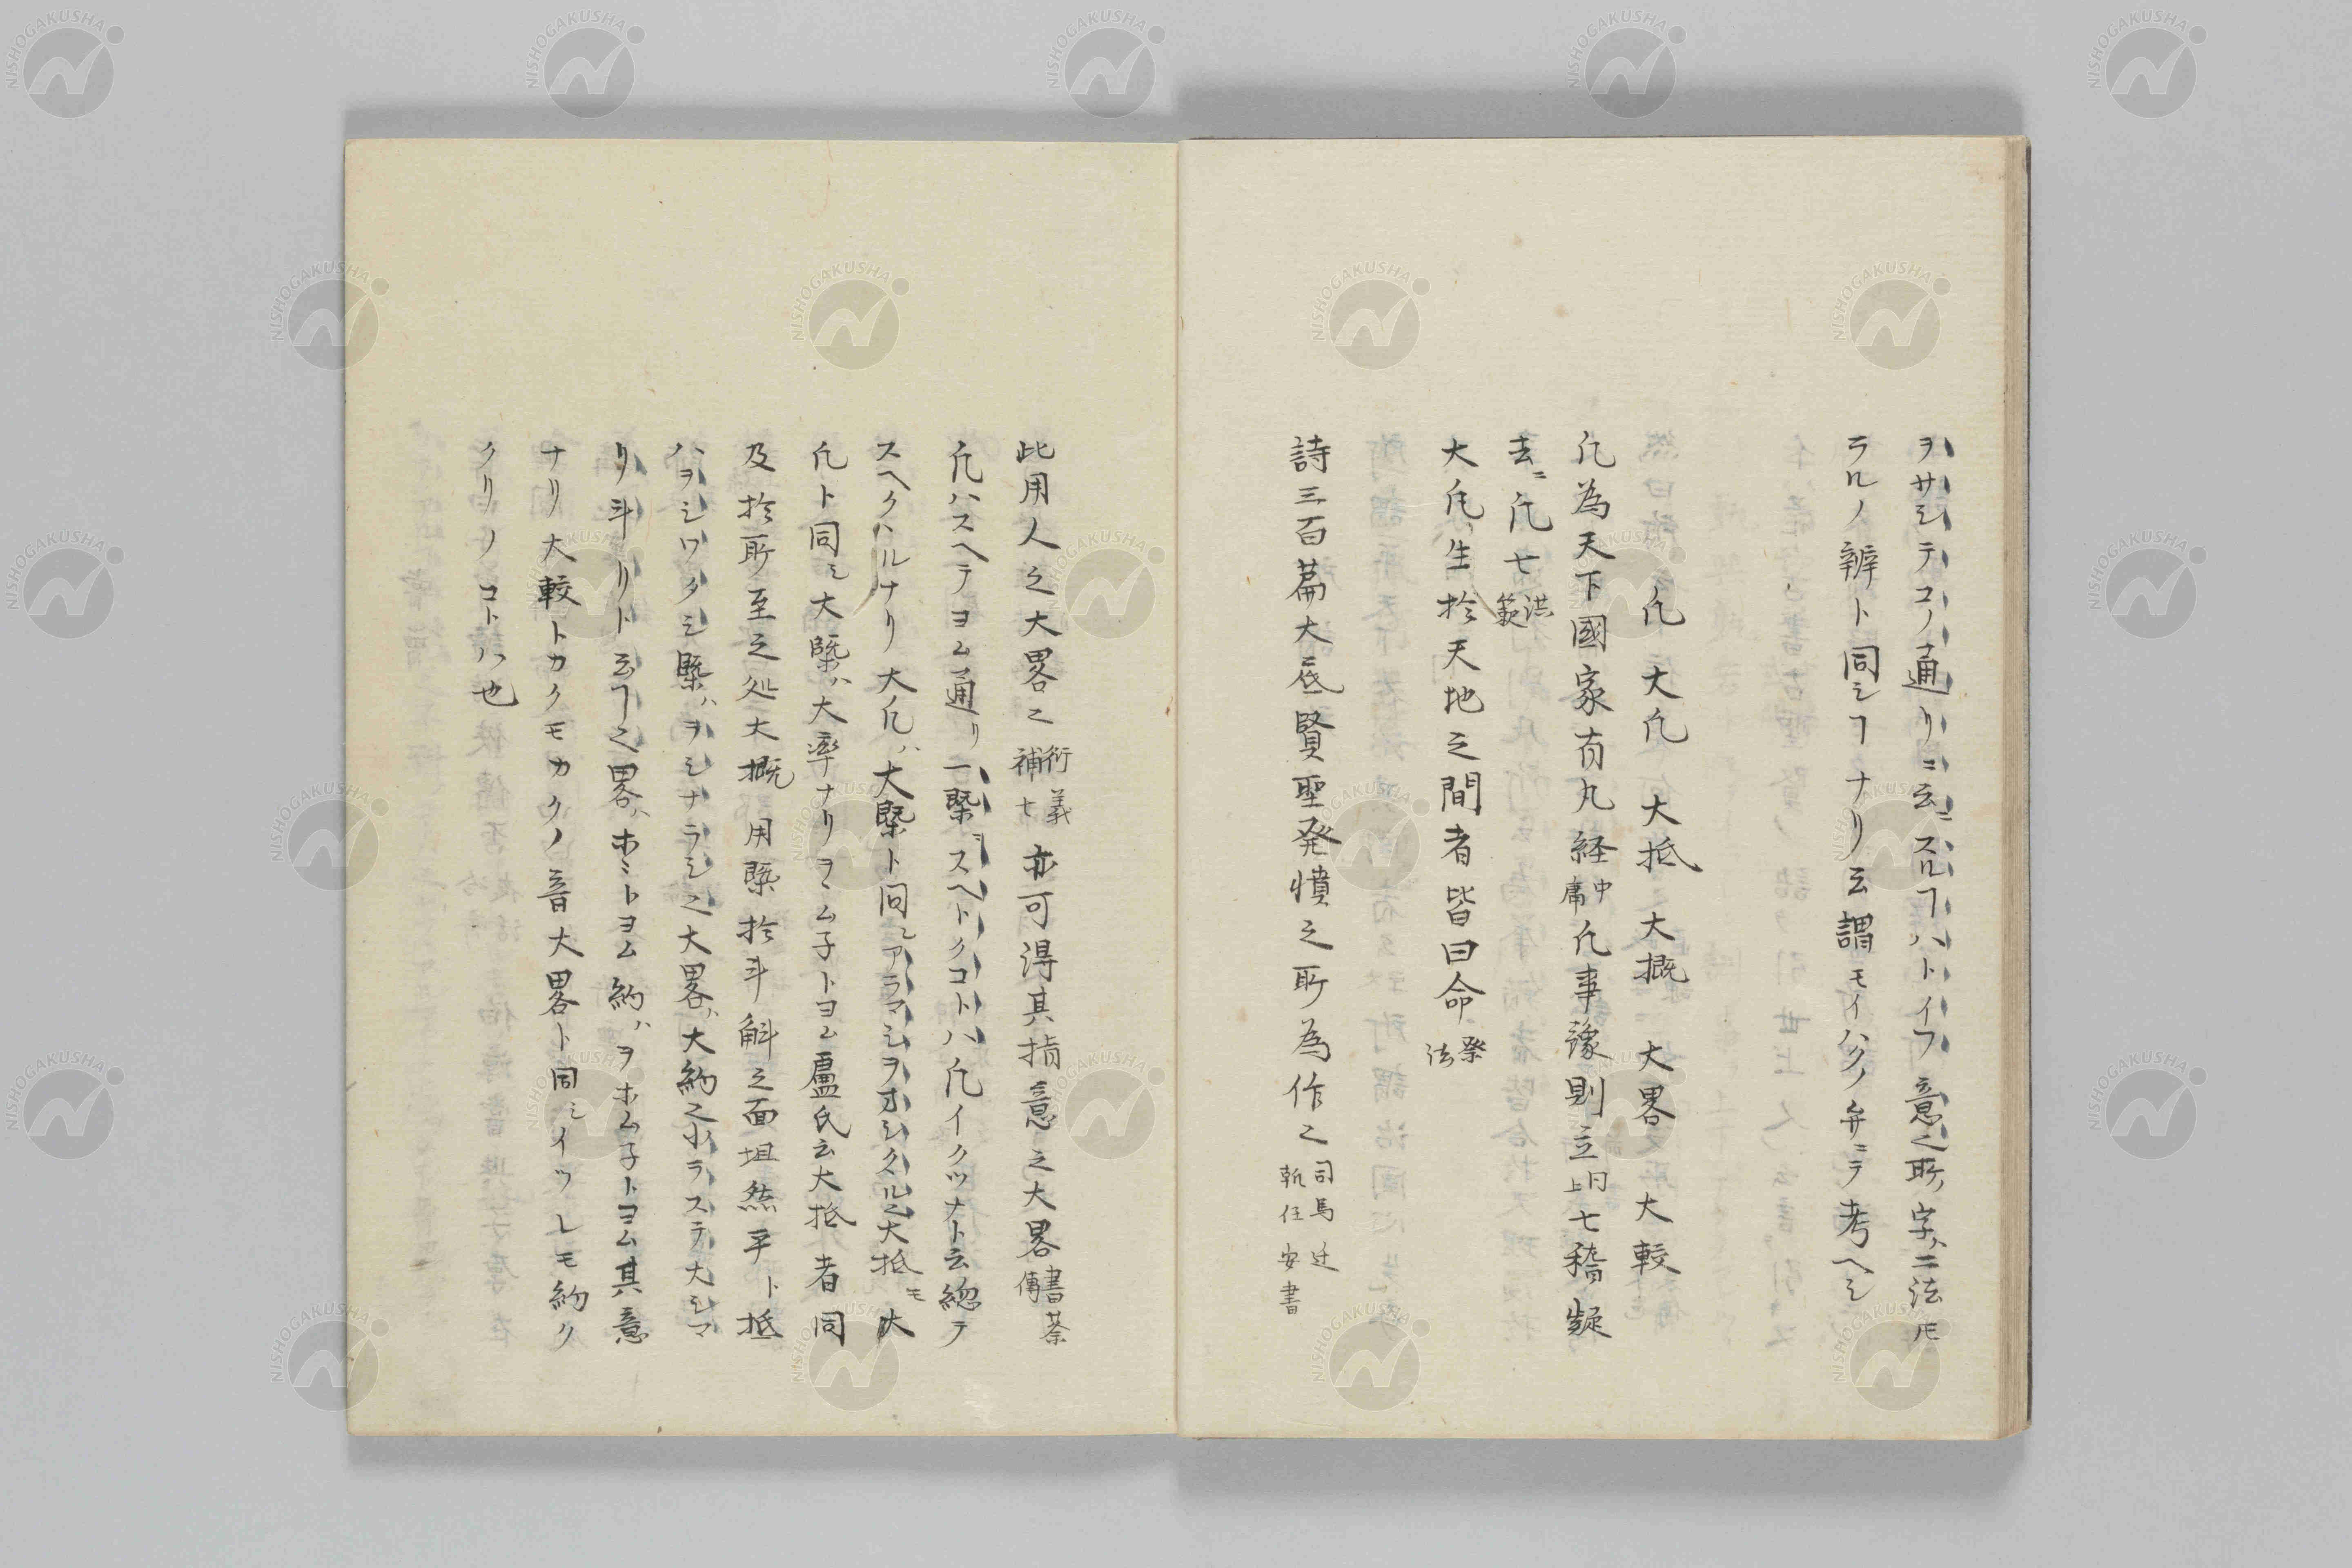 ヲサシテコノ通リニ云ニスルヿハトイフ意也所ノ字ハ二法ヒ
ラルノ辨ト同シヿナリ云謂モイハクノ弁ニテ考ヘシ
凢　大凢　大抵　大概　大畧　大較
凢為天下國家有九経中庸凢事豫則立同上七稽疑
去ニ凢七洪範
大凢生於天地之間者皆曰命祭法
詩三百篇大底賢聖発憤之所為作也司馬迁報任安書
此用人之大畧也衍義補七亦可得其指意之大畧書蔡傳
凢ハスヘテヨム通リ一槩ヲスヘトクコトハ凢イクツナト云緫テ
スヘクハルナリ大凢ハ大槩ト同シアラマシヲオシクル也大抵モ大
凢ト同シ大槩ハ大率ナリヲヽム子トヨム盧氏云大抵者同
及於所至之処大概用槩於斗斛之面坦然平ト抵
ハヲシワタシ槩ハヲシナラシ也大畧ハ大約也小ラステ大シマ
リ斗リト云ヿ也畧ハホヽトヨム約ハヲホム子トヨム其意
ナリ大較トカクモカクノ音大畧ト同シイツレモ約ク
クリノコトハ也